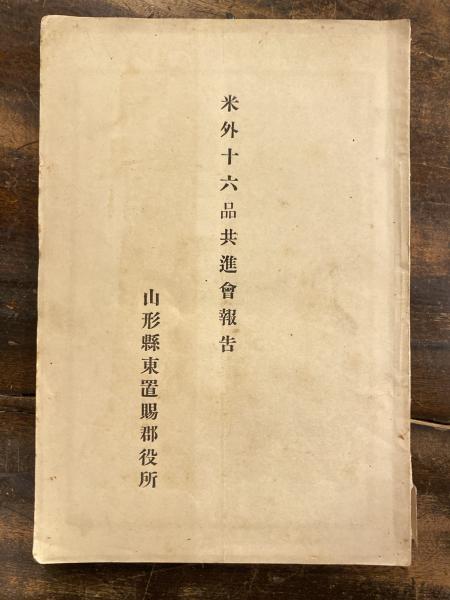 米外十六品共進會報告
山形縣東置賜郡役所